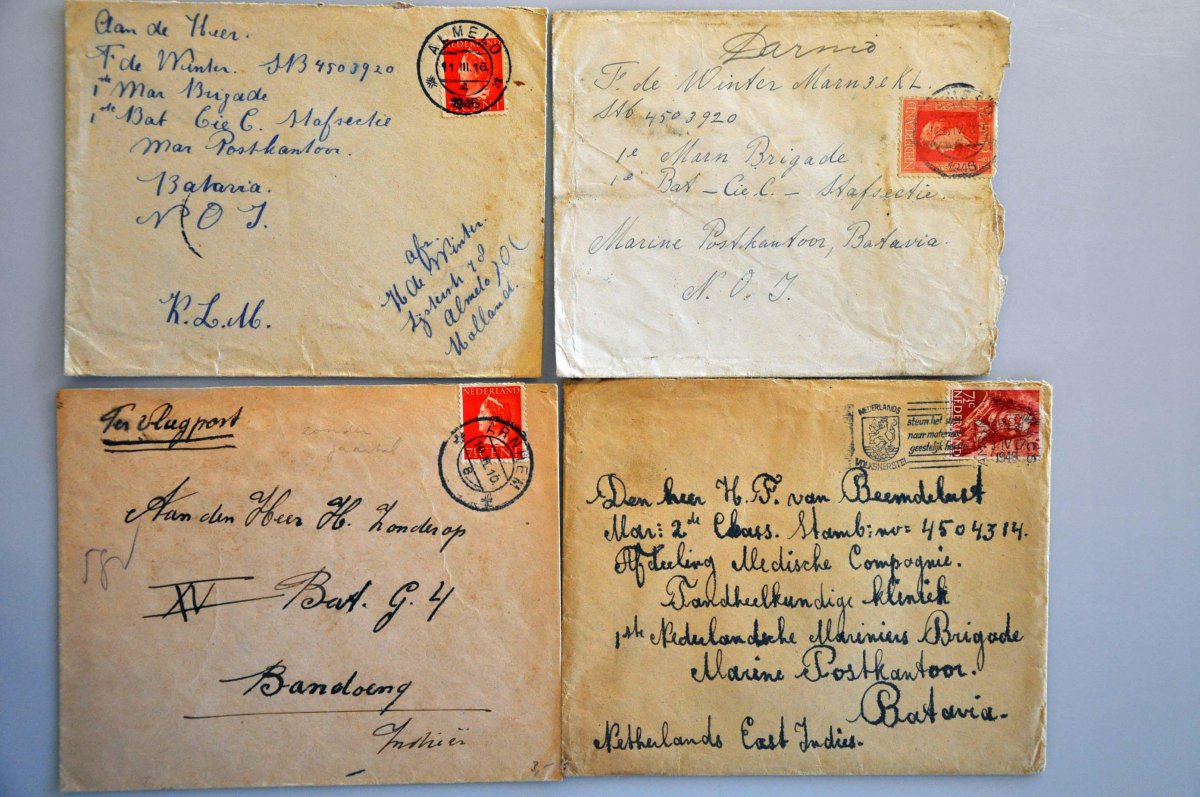 Aan de Heer.
F. de Winter. SNB 4503920
1de Mar Brigade
1ste Bat Cie C. Stafsectie
Mar Postkantoor.
Batavia.
N O I.
K.L.M.
afz.
H de Winter
78
Almelo
Holland.
ALMELO
11.III.16
1946
Darmo
F. de Winter Marn 3e KL.
Stb 4503920
1e Marn Brigade
1e Bat – Cie C. – Stafsectie
Marine Postkantoor, Batavia.
N. O. I.
NEDERLAND
Per Vliegpost
NEDERLAND
7½ CENT
ARNHEM
Aan den Heer H. Zonderop
XV Bat. G. 4
Bandoeng
Indieën
3,-
NEDERLANDS
VOLKSHERSTEL
steunt het
naar materieel
geestelijk
7½ C
NEDERLAND
Den heer H. F. van Beemdelust
Mar: 2de Classs. Stamb: no= 4504314.
Afdeeling Medische Compagnie.
Tandheelkundige kliniek
1ste Nederlandsche Mariniers Brigade
Marine Postkantoor.
Batavia.
Netherlands East Indies.